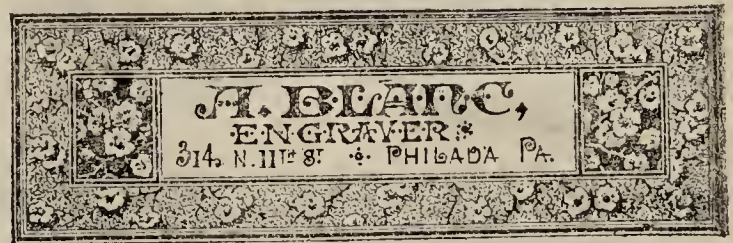 A. BLANC,
ENGRAVER
314 N. 11TH ST PHILADA PA.